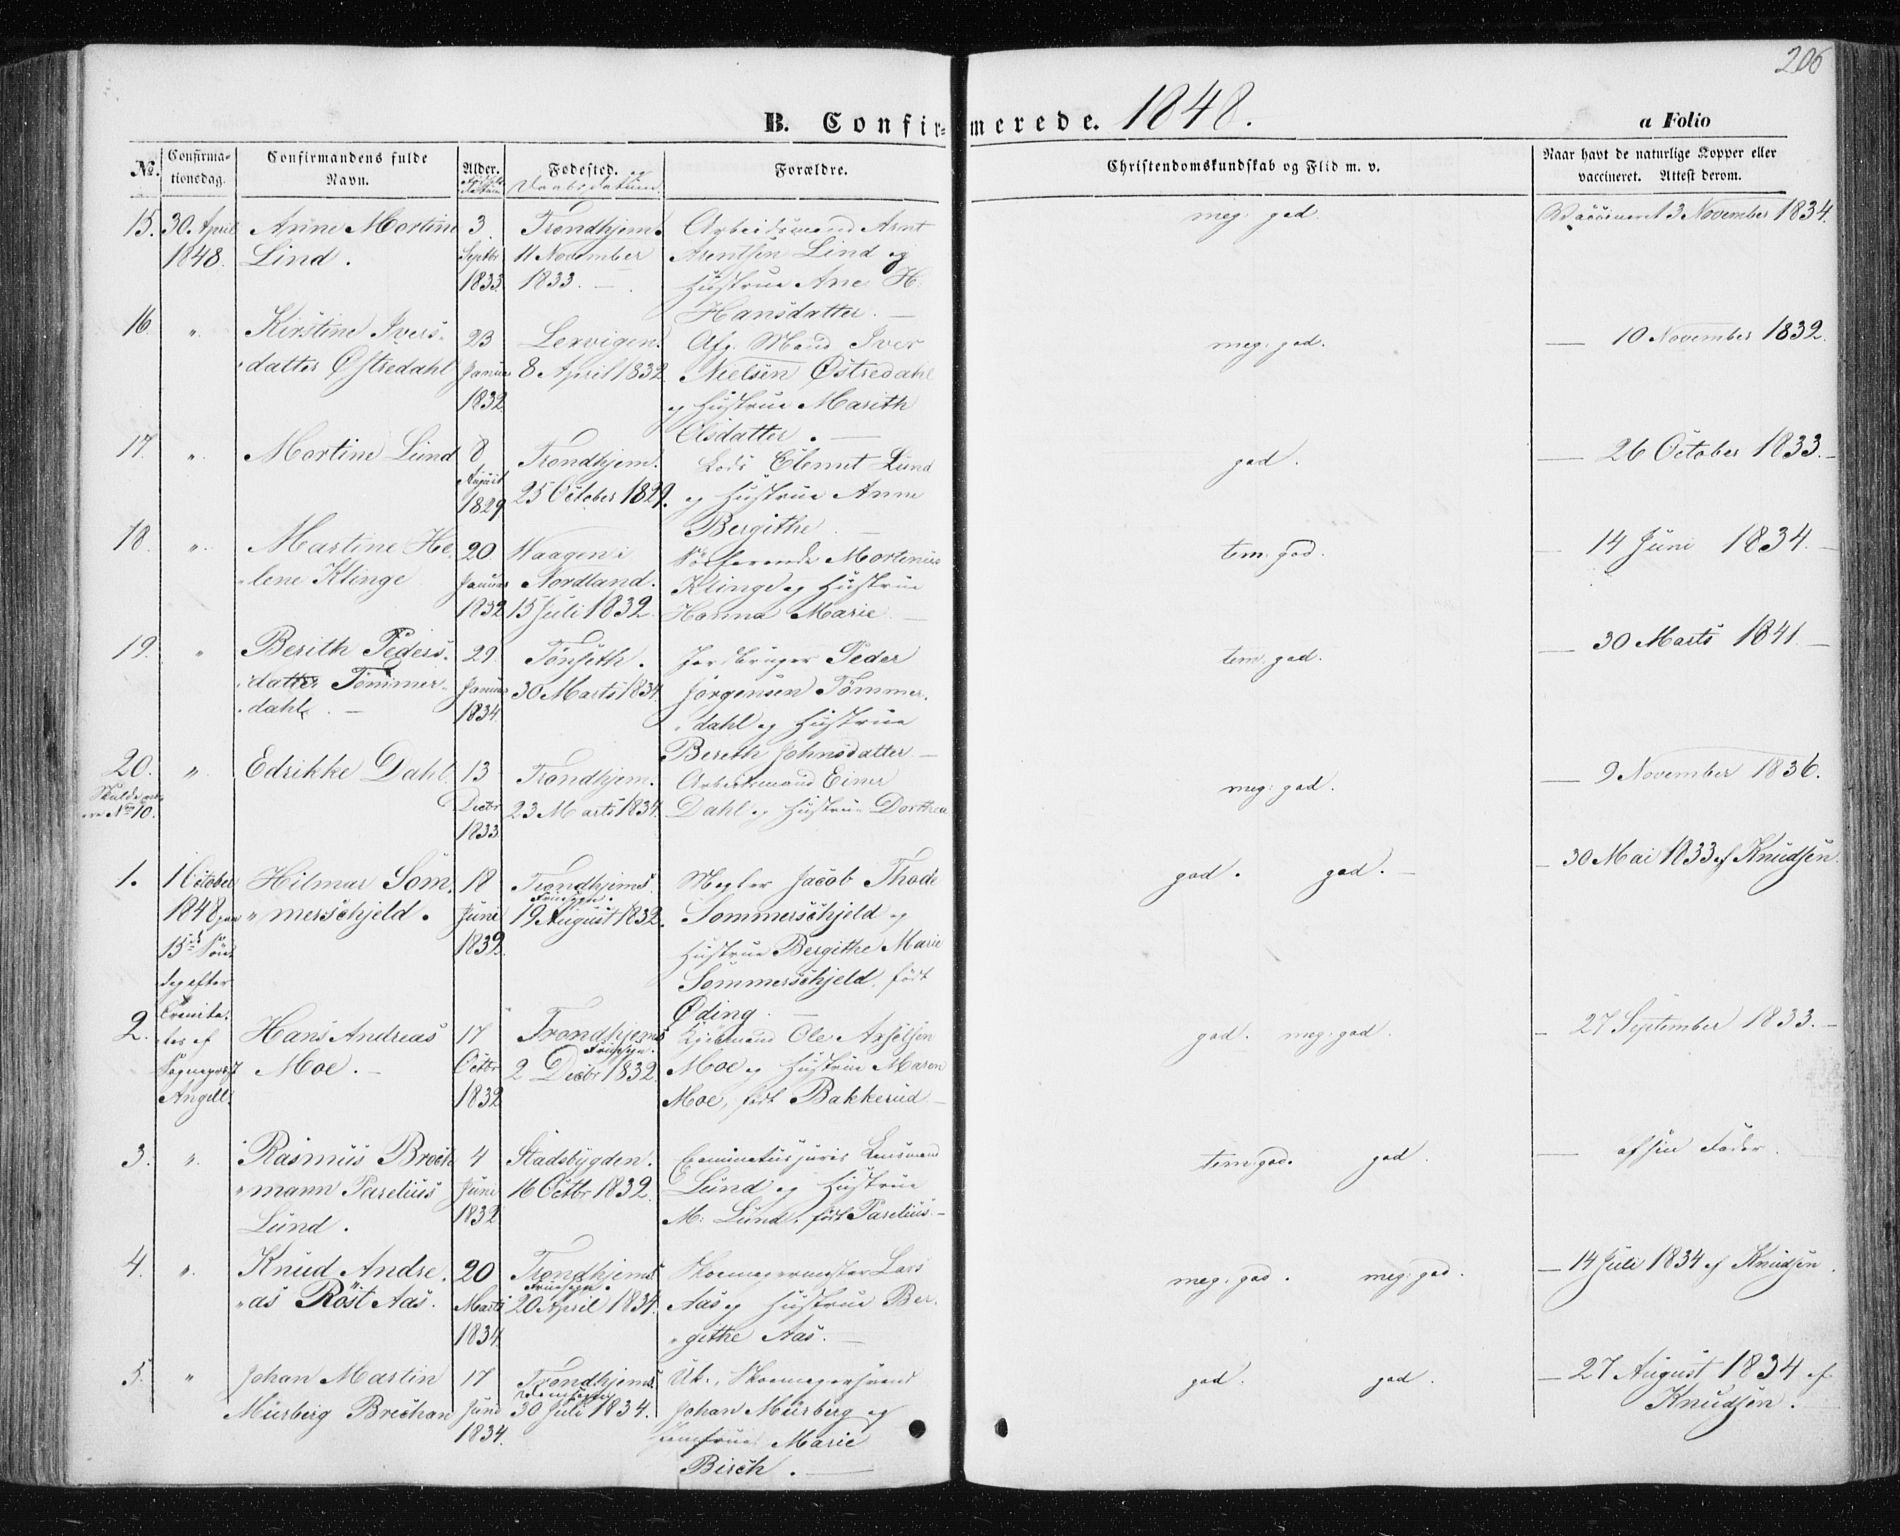 206
B. Confirmerede. 1848.
a Folio
No. Confirmationsdag. Confirmandens fulde Navn. Alder. Fødested. og Daabsdatum Forældre. Christendomskundskab og Flid m. v. Naar havt de naturlige Kopper eller vaccineret. Attest derom.
15. 30 April Anne Martine 3 Trondhjem. Arbeidsmand Arnt meg: god. Vaccineret 3 November 1834.
1848. Lind. Septbr 11 November Arentsen Lind og
1833. 1833. Hustrue Ane H.
Hansdatter.
16. " Kirstine Ivers- 23 Lexvigen. Afg. Mand Iver meg: god. — 10 November 1832.
datter Østredahl Januar 8 April 1832 Nielsen Østredahl
1832 og Hustrue Marith
Olsdatter.
17. " Martine Lund 8 Trondhjem. Lods Ellement Lund god. — 26 October 1833.
August 25 October 1829. og Hustrue Anne
1829 Bergithe
18. " Martine He- 20 Waagen i Søefarende Mortinius tem. god. — 14 Juni 1834.
lene Klinge Januar Nordland. Klinge og Hustrue
1832 15 Juli 1832. Hanna Marie
19. " Berith Peders- 29 Tønseth. Jordbruger Peder tem. god. — 30 Marts 1841.
datter Tømmer- Januar 30 Marts 1834. Jørgensen Tømmer-
dahl. 1834. dahl og Hustrue
Bereth Johnsdatter
20. " Edrikke Dahl. 13 Trondhjem. Arbeidsmand Einer meg: god. — 9 November 1836.
No 10. Decbr 23 Marts 1834. Dahl og Hustrue Dorthea
1833
1. 1 October Hilmar Som- 18 Trondhjems Megler Jacob Thode god. god. — 30 Mai 1833 af Knudsen.
1848 merschjeld. Juni Fruesogn. Sommerschjeld og
15de Søn- 1832. 19 August 1832. Hustrue Bergithe Marie
dag efter Sommerschjeld, født
Trinita- Øding.
2. tis af Hans Andreas 17 Trondhjems Ole Axelsen god. meg: god. — 27 September 1833.
Sognepræst Moe. Octbr Fruesogn. Moe og Hustrue Maren
Angell. 1832 2 Decbr 1832. Moe, født Bakkerud
3. " Rasmus Broch- 4 Stadsbygden. juris Lensmand tem: god. god. — af sin Fader.
mann Parelius Juni 16 Octbr 1832. Lund og Hustrue
Lund. 1832 M: Lund, født Parelius.
4. " Knud Andre- 20 Trondhjems Skomagermester Lars meg: god. meg: god. — 14 Juli 1834 af Knudsen.
as Röst Aas. Marts Fruesogn. Aas og Hustrue Ber-
1834. 20 April 1834. githe Aas.
5. " Johan Martin 17 Trondhjems Uk., Skomagersvend god. god. — 27 August 1834 af
Mürberg Brechan Juni Domsogn Johan Mürberg og Knudsen.
1834. 30 Juli 1834. Marie
Birch.